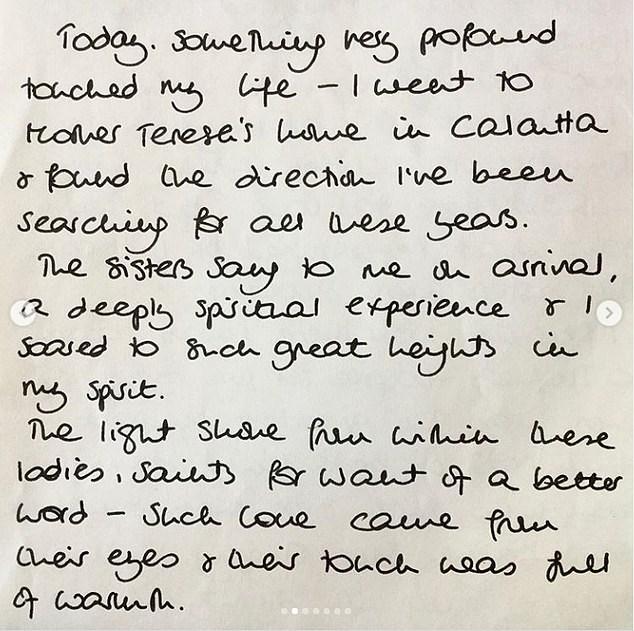 Today. Something very profound
touched my life – I went to
Mother Teresa's home in Calcutta
& found the direction I've been
searching for all these years.
The Sisters sang to me on arrival,
a deeply spiritual experience & I
soared to such great heights in
my spirit.
The light shone from within these
ladies, saints for want of a better
word – such love came from
their eyes & their touch was full
of warmth.